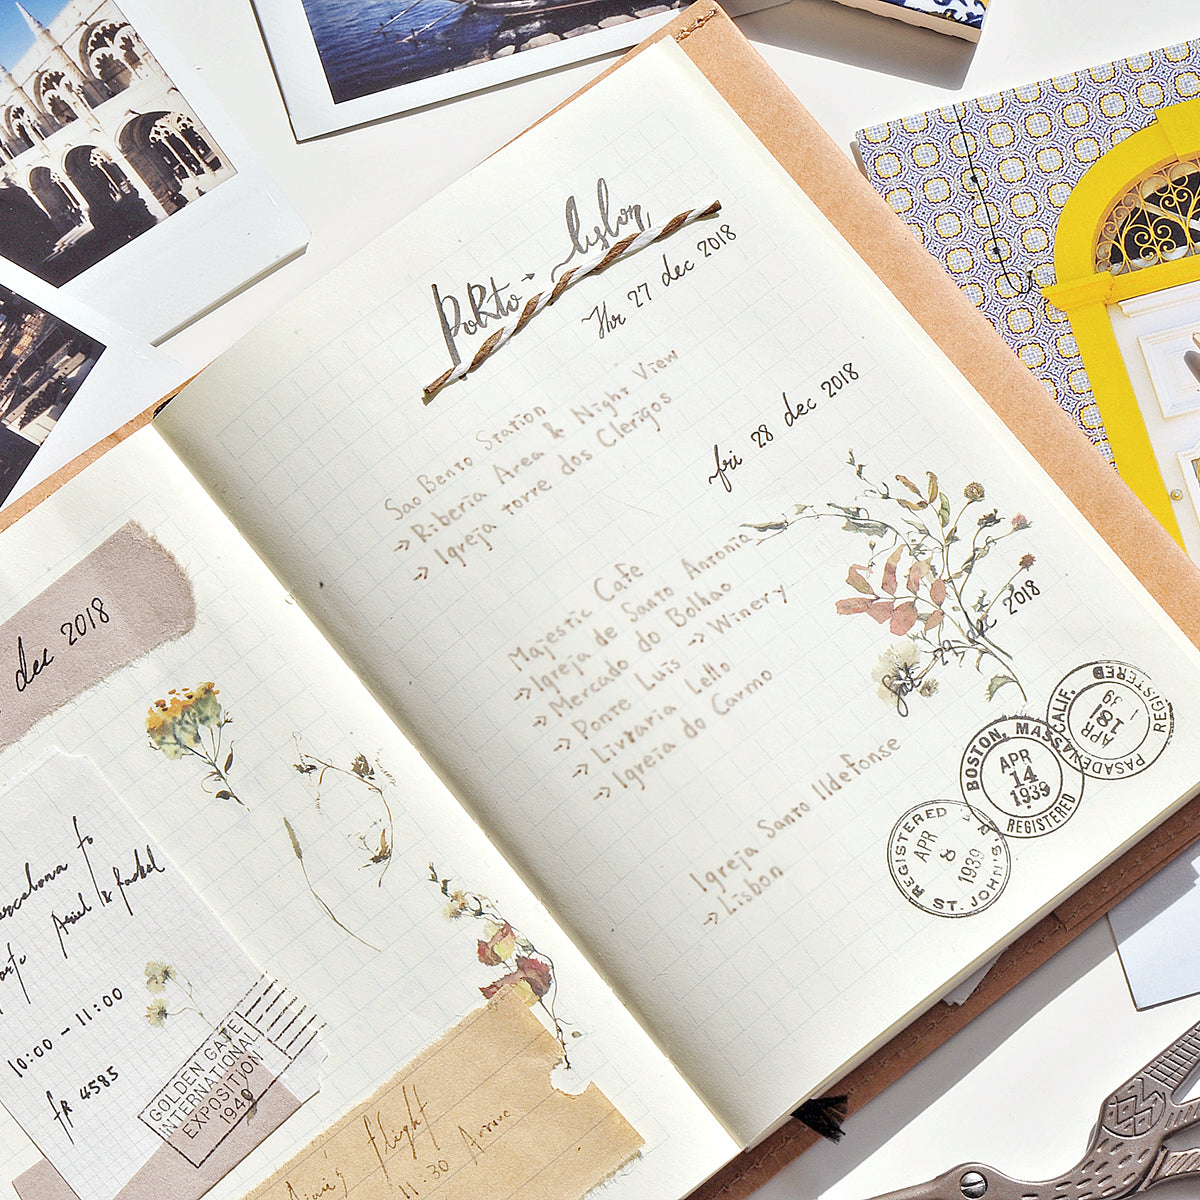 dec 2018
Barcelona to
Porto Ariel & Rachel
10:00 - 11:00
FR 4585
GOLDEN GATE
INTERNATIONAL
EXPOSITION
1940
flight
11:30 Arrive
Porto - Lisbon
Thr 27 dec 2018
Sao Bento Station
→ Riberia Area & Night View
→ Igreja torre dos Clerigos
fri 28 dec 2018
Majestic Cafe
→ Igreja de Santo Antonia
→ Mercado do Bolhao
→ Ponte Luis → Winery
→ Livraria Lello
→ Igreia do Carmo
Sat 29 dec 2018
Igreja Santo Ildefonse
→ Lisbon
REGISTERED
APR 8 1939
ST. JOHN'S,
BOSTON, MASS.
APR
14
1939
REGISTERED
PASADENA CALIF.
APR
18
1939
REGISTERED